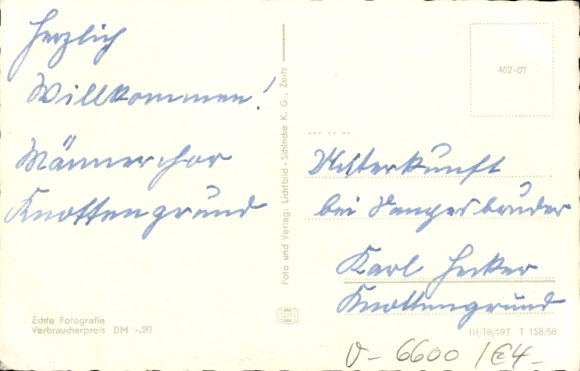 Herzlich
Willkommen!
Männerchor
Knottengrund
Foto und Verlag: Lichtbild-Schincke K. G., Zeitz
462-07
Unterkunft
bei Sangesbruder
Karl Hecker
Knottengrund
Echte Fotografie
Verbraucherpreis DM -.20
III/18/197 T 158/58
V-6600 /E4-